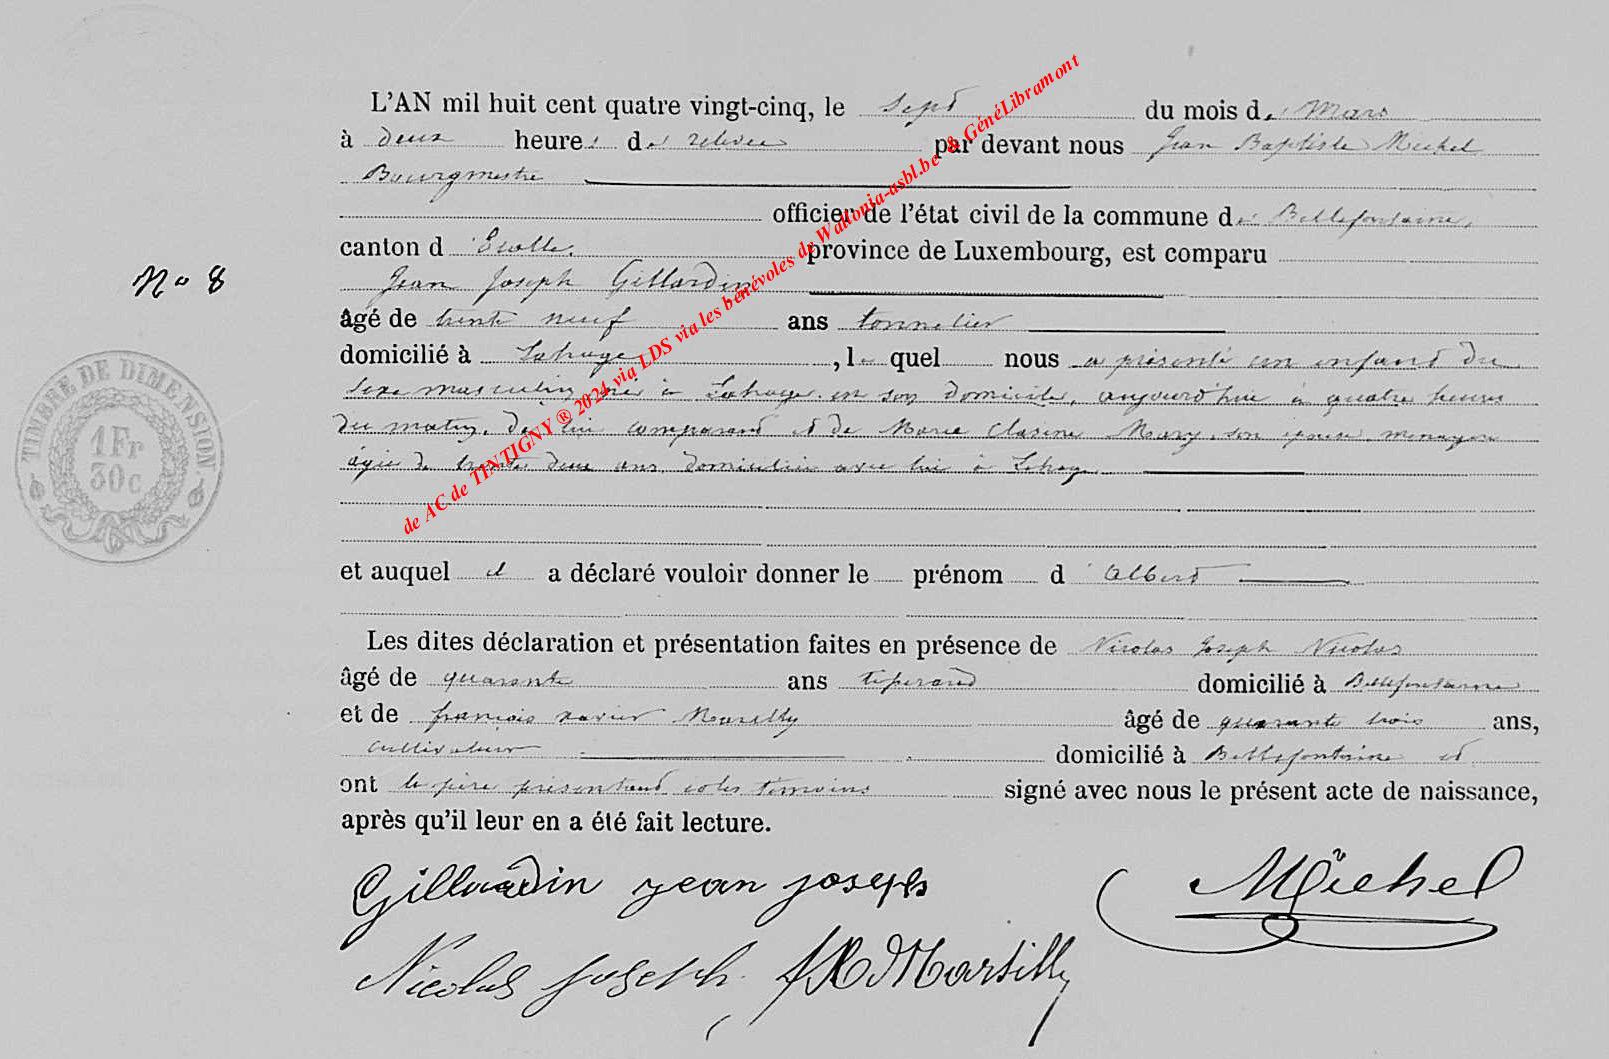 L'AN mil huit cent quatre vingt-cinq, le sept du mois de Mars
à deux heures de relevée par devant nous Jean Baptiste Michel
Bourgmestre
officier de l'état civil de la commune de Bellefontaine,
canton d'Etalle. province de Luxembourg, est comparu
Jean Joseph Gillardin
N° 8
âgé de trente neuf ans tonnelier
domicilié à Lahage, lequel nous a présenté un enfant du
sexe masculin, né à Lahage en son domicile, aujourd'hui à quatre heures
du matin, de lui comparant et de Marie Mary, son épouse, ménagère
âgée de trente deux ans, domiciliée avec lui à Lahage.
et auquel il a déclaré vouloir donner le prénom d'Albert
Les dites déclaration et présentation faites en présence de Nicolas Joseph Nicolas
âgé de quarante ans tisserand domicilié à Bellefontaine
et de françois xavier Marsilly âgé de quarante trois ans,
cultivateur domicilié à Bellefontaine et
ont le père présentant et les témoins signé avec nous le présent acte de naissance,
après qu'il leur en a été fait lecture.
Gillardin jean joseph
Michel
Nicolas joseph
fX Marsilly
TIMBRE DE DIMENSION
1 Fr
30 c
de AC de TINTIGNY ® 2024 via LDS via les bénévoles de Wallonia-asbl.be & GénéLibramont